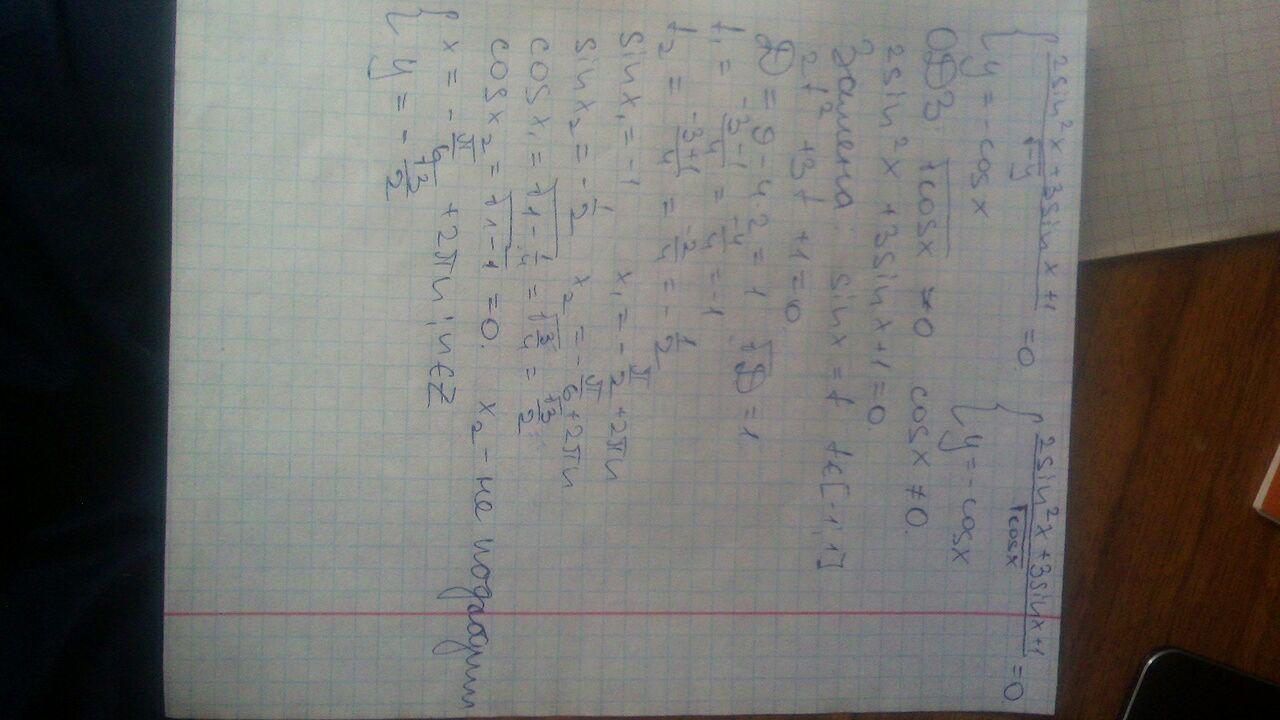 { (2sin²x+3sinx+1)/√-y = 0. { (2sin²x+3sinx+1)/√cosx = 0
y = -cosx y = -cosx
ОДЗ: √cosx ≠ 0 cosx ≠ 0.
2sin²x + 3sinx+1 = 0.
Замена: sinx = t t∈[-1,1]
2t² + 3t + 1 = 0.
D = 9-4·2 = 1 √D = 1.
t₁ = (-3-1)/4 = -4/4 = -1
t₂ = (-3+1)/4 = -2/4 = -1/2
sinx₁ = -1 x₁ = -π/2 + 2πn
sinx₂ = -1/2 x₂ = -π/6 + 2πn
cosx₁ = √(1-1/4) = √(3/4) = √3/2
cosx₂ = √(1-1) = 0. x₂ - не подходит
{ x = -π/6 + 2πn, n∈Z
y = -√3/2